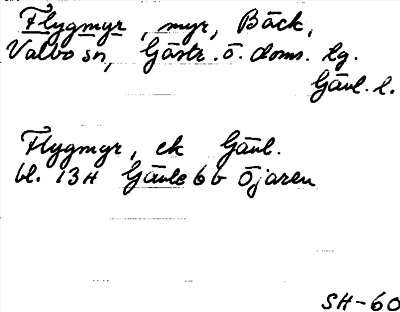 Flygmyr, myr, Bäck,
Valbo sn, Gästr. ö. doms. lg.
Gävl. l.
Flygmyr, ek Gävl.
bl. 13H Gävle 6b Öjaren
SH-60